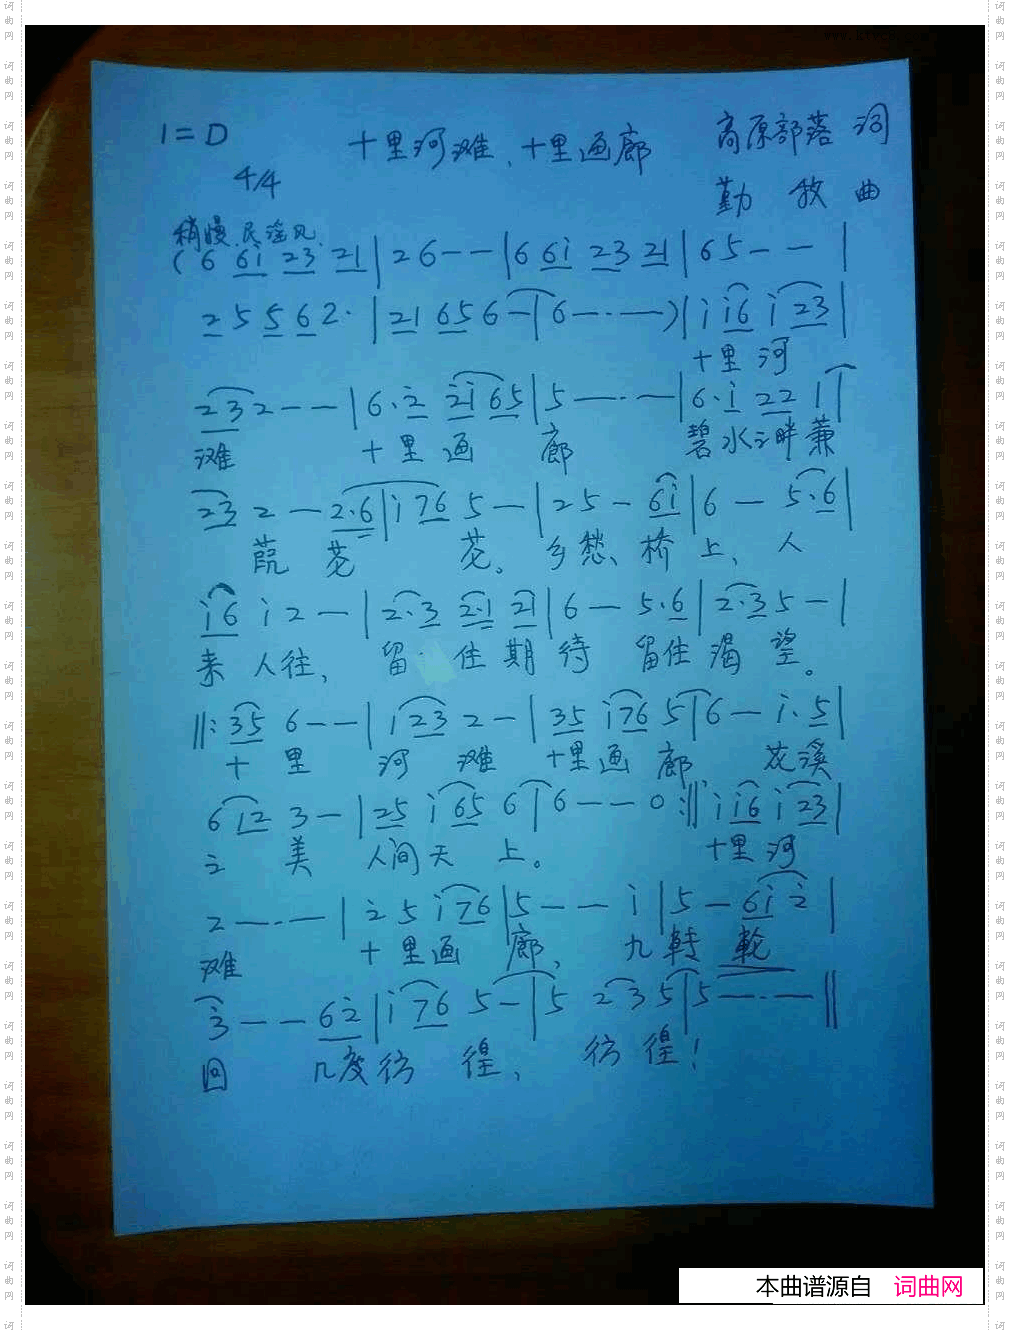 1=D 十里河滩、十里画廊 高原部落 词
4/4 勤 牧 曲
稍慢 民谣风
(6 6i 23 21|26--|6 6i 23 21|65--|
25 5 6 2·|21 65 6-|6-·-·-)|i i6 i 23|
十里 河
232--|6·2 2i 65|5-·-·-|6·i 22 1|
滩 十里画 廊 碧水之畔蒹
23 2-2·6|i 76 5-|25-6i|6-5·6|
葭 芲 芲。乡愁、桥上、人
i6 i2-|2·3 2·1 21|6-5·6|2·3 5-|
来 人往, 留 住期待 留住渴望。
‖:35 6--|i 23 2-|35 i76 5|6-i·5|
十 里 河 滩 十里画 廊 花溪
6 12 3-|25 i 65 6|6--0:‖i i6 i 23|
之 美 人间天 上。 十里 河
2-·-·-|2 5 i 76|5--i|5-6i 2|
滩 十里画 廊、 九转 轮
3--62|i 76 5-|5 2 3 5|5-·-·-‖
回 几度彷 徨, 彷徨!
本曲谱源自 词曲网